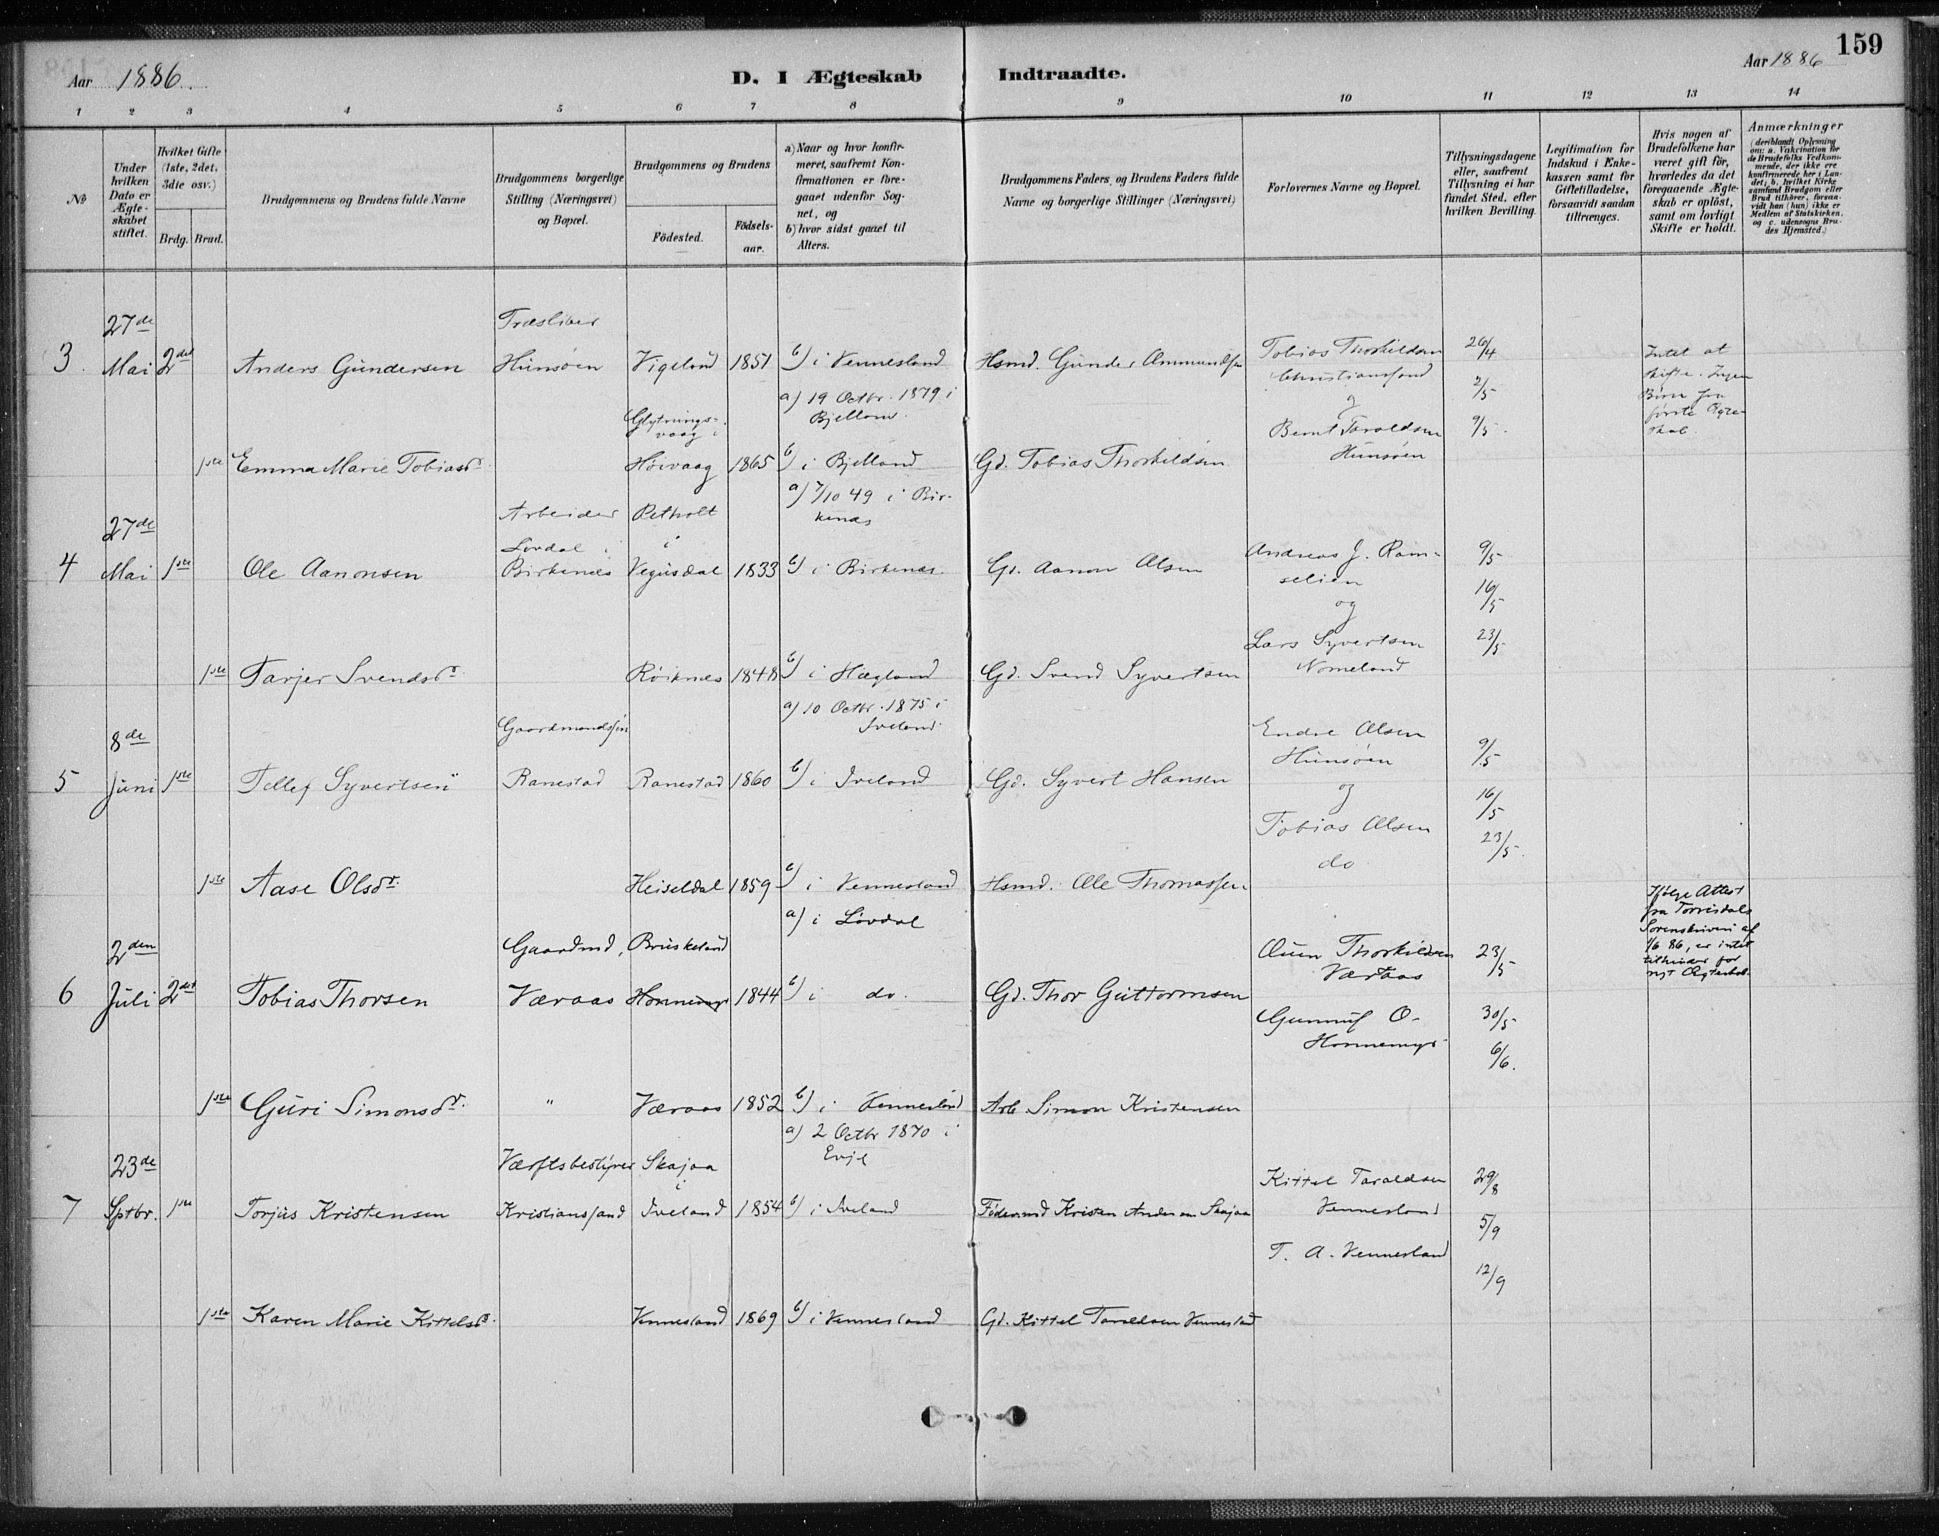 159
Aar 1886.
D. I Ægteskab Indtraadte.
Aar 1886
1 2 3 4 5 6 7 8 9 10 11 12 13 14
№
Under hvilken Dato er Ægteskabet stiftet.
Hvilket Gifte (1ste, 2det, 3die osv.)
Brdg. Brud.
Brudgommens og Brudens fulde Navne
Brudgommens borgerlige Stilling (Næringsvei) og Bopæl.
Brudgommens og Brudens
Födested.
Födsels-aar.
a) Naar og hvor konfirmeret, saafremt Konfirmationen er foregaaet udenfor Sognet, og
b) hvor sidst gaaet til Alters.
Brudgommens Faders, og Brudens Faders fulde Navne og borgerlige Stillinger (Næringsvei)
Forlovernes Navne og Bopæl.
Tillysningsdagene eller, saafremt Tillysning ei har fundet Sted, efter hvilken Bevilling.
Legitimation for Indskud i Enkekassen samt for Giftetilladelse, forsaavidt saadan tiltrænges.
Hvis nogen af Brudefolkene har været gift för, hvorledes da det foregaaende Ægteskab er oplöst, samt om lovligt Skifte er holdt.
Anmærkninger
(deriblandt Oplysning om: a. Vakcination for de Brudefolks Vedkommende, der ikke ere konfirmerede her i Landet; b. hvilket Kirkesamfund Brudgom eller Brud tilhörer, forsaavidt han (hun) ikke er Medlem af Statskirken, og c. udenogns Brudes Hjemsted.)
3 27de Mai 2det
Anders Gundersen
Træsliber
Hunsøen
Vigeland 1851
b) i Vennesland
Hsmd. Gunder Ammundsen
Tobias Thorkildsen
Christianssand
og
Bernt Taraldsen
Hunsøen
26/4
2/5
9/5.
Intet at
skifte. Ingen
Børn fra
første Ægte-
skab.
1ste Emma Marie Tobiasdr
Glytrings-
vaag i
Høivaag 1865
a) 19 Octbr. 1879 i
Bjelland.
b) i Bjelland
Gd. Tobias Thorkildsen
4 27de Mai 1ste
Ole Aanonsen
Arbeider
Lovdal i
Birkenæs
Retholt
i
Vegusdal 1833
a) 7/10 49 i Bir-
kenæs
b) i Birkenæs.
Gd. Aanon Olsen
Andreas J. Ram-
selien
og
Lars Syvertsen
Nomeland
9/5
16/5
23/5
1ste Tarjer Svendsdr
Röiknæs 1848
b) i Hægland
Gd. Svend Syvertsen
5 8de Juni 1ste
Tellef Syvertsen
Gaardmandssøn
Ranestad
Ranestad 1860
a) 10 Octbr. 1875 i
Iveland.
b) i Iveland
Gd. Syvert Hansen
Endre Olsen
Hunsøen
og
Tobias Olsen
do
9/5
16/5
23/5.
1ste Aase Olsdr.
Heiseldal 1859
b) i Vennesland
Hsmd. Ole Thomassen
6 2den Juli 2det
Tobias Thorsen
Gaardmd,
Væraas
Bruskeland
Honnemyr 1844
a) i Lövdal
b) i do.
Gd. Thor Guttormsen
Thorkildsen
Væraas
Gunnuf O-
Honnemyr
23/5
30/5
6/6.
Ifølge Attest
fra Torrisdals
Sorenskriveri af
86, er intet
tilhinder for
nyt Ægteskab.
1ste Guri Simonsdr.
"
Væraas 1852
b) i Vennesland
Arb Simon Kristensen
7 23de Sptbr. 1ste
Torjus Kristensen
Værftsbestyrer
Kristianssand
Skajaa
i
Iveland 1854
a) 2 Octbr 1870 i
Evje
b) i Iveland
Föderaad Kristen Andersen Skajaa
Kittel Taraldsen
Vennesland
T. A. Vennesland
29/8
5/9
12/9
1ste Karen Marie Kittelsdr.
Vennesland 1869
b) i Vennesland
Gd. Kittel Taraldsen Vennesland